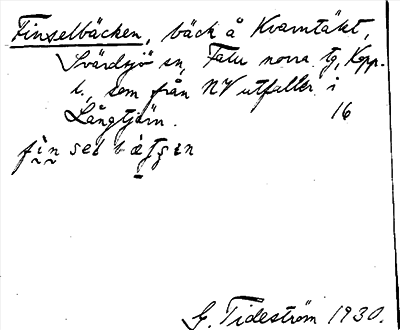 Finselbäcken, bäck å Kvarntäkt,
Svärdsjö sn, Falu norra tg, Kopp.
l., som från NV utfaller i
Långtjärn. 16
G. Tideström 1930.